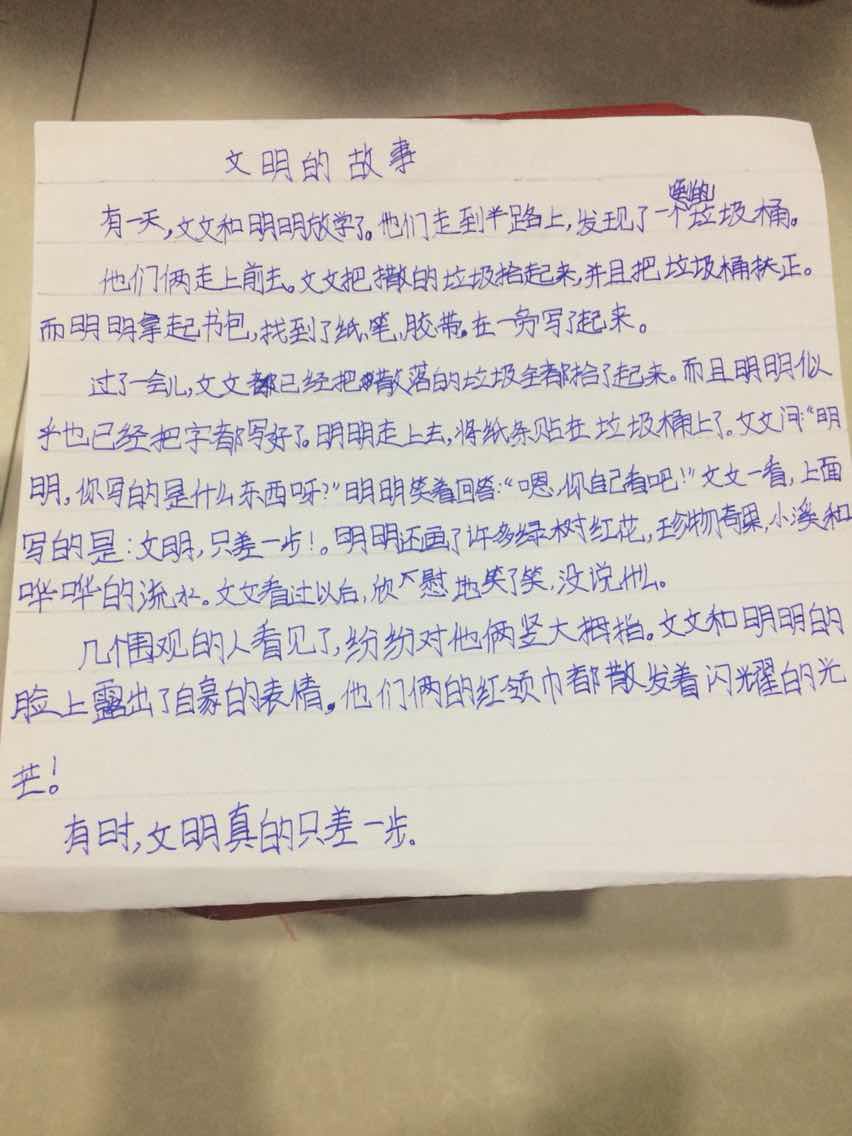 文明的故事
有一天,文文和明明放学了。他们走到半路上,发现了一个倒的垃圾桶。
他们俩走上前去。文文把撒的垃圾拾起来,并且把垃圾桶扶正。
而明明拿起书包,找到了纸、笔、胶带。在一旁写了起来。
过了一会儿,文文都已经把散落的垃圾全都拾了起来。而且明明似
乎也已经把字都写好了。明明走上去,将纸条贴在垃圾桶上了。文文问:“明
明,你写的是什么东西呀?”明明笑着回答:“嗯,你自己看吧!”文文一看,上面
写的是:文明,只差一步!。明明还画了许多绿树红花,珍物奇果,小溪和
哗哗的流水。文文看过以后,欣慰地笑了笑,没说什么。
几个围观的人看见了,纷纷对他俩竖大拇指。文文和明明的
脸上露出了自豪的表情。他们俩的红领巾都散发着闪耀的光
芒!
有时,文明真的只差一步。